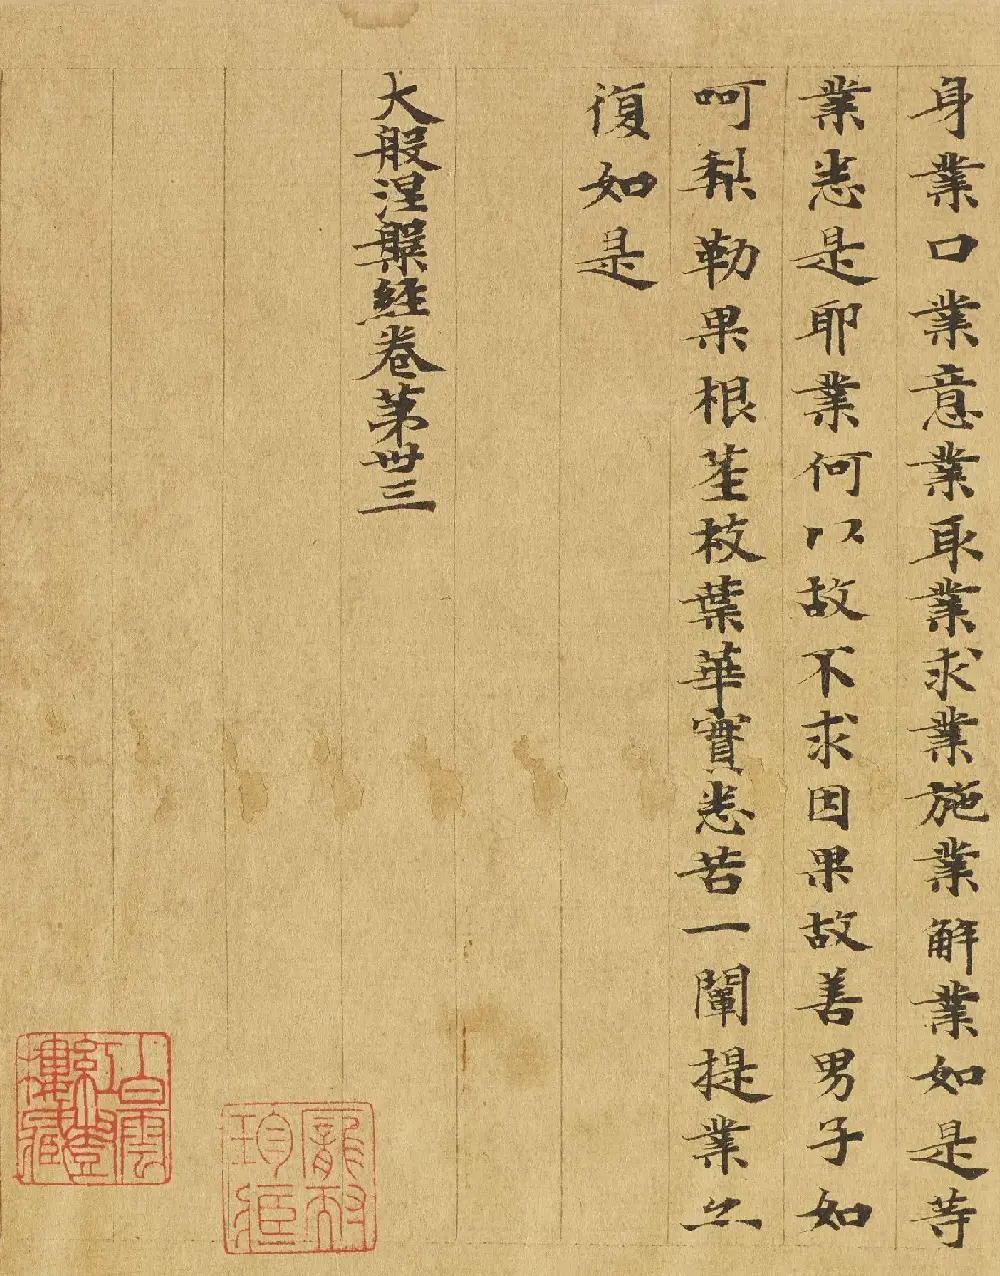 身業口業意業取業求業施業解業如是等
業悉是耶業何以故不求因果故善男子如
呵梨勒果根莖枝葉華實悉苦一闡提業亦
復如是
大般涅槃経卷第卅三